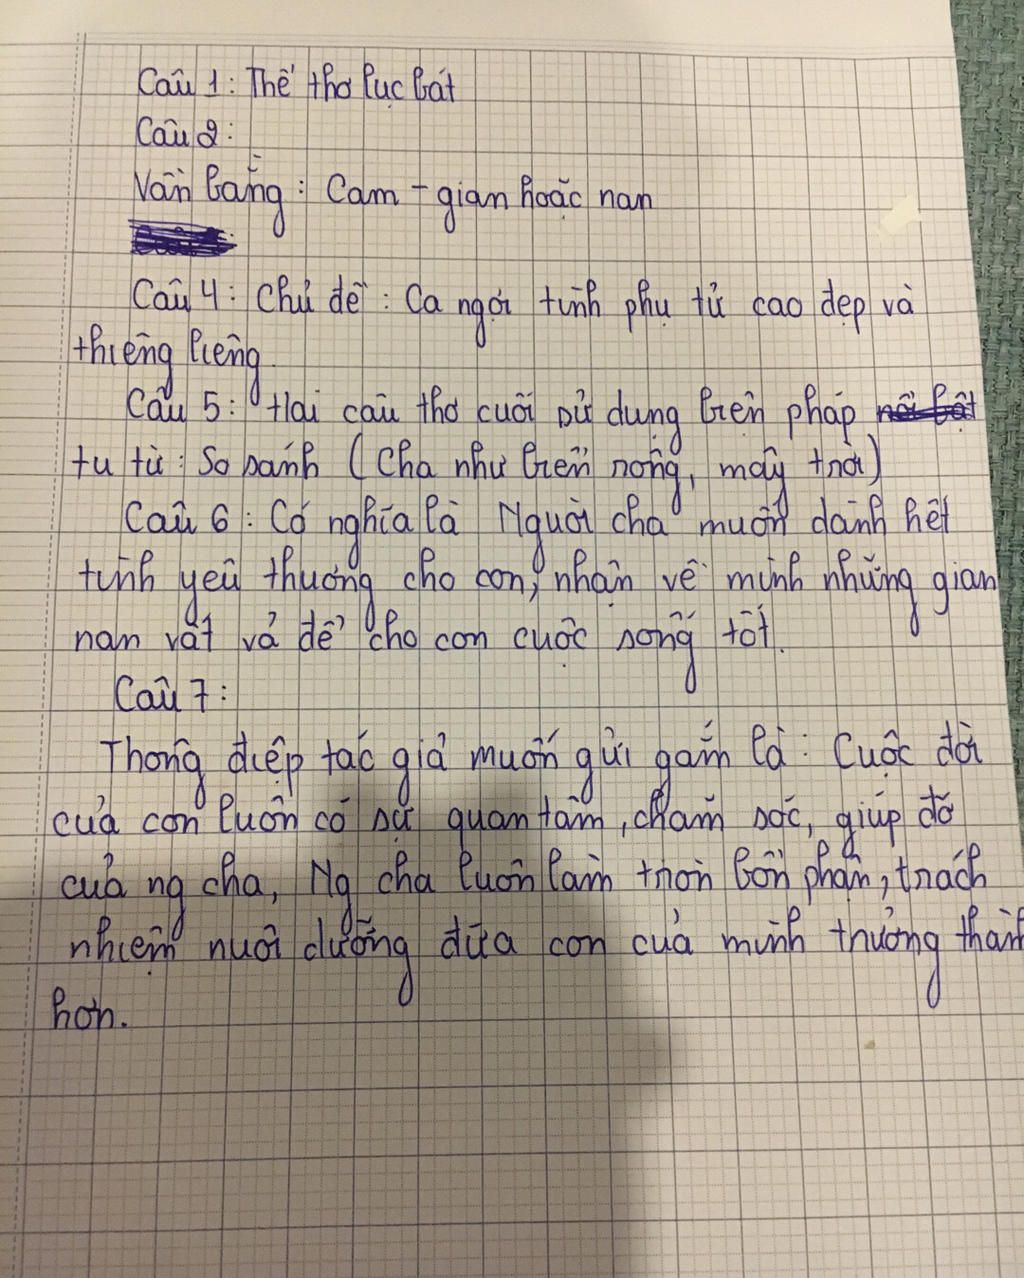 Câu 1: Thể thơ lục bát
Câu 2:
Vần bằng: Cam - gian hoặc nan
Câu 4: Chủ đề: Ca ngợi tình phụ tử cao đẹp và
thiêng liêng.
Câu 5: Hai câu thơ cuối sử dụng biện pháp nổi bật
tu từ: So sánh (Cha như biển rộng, mây trời)
Câu 6: Có nghĩa là Người cha muốn dành hết
tình yêu thương cho con, nhận về mình những gian
nan vất vả để cho con cuộc sống tốt.
Câu 7:
Thông điệp tác giả muốn gửi gắm là: Cuộc đời
của con luôn có sự quan tâm, chăm sóc, giúp đỡ
của ng cha, Ng cha luôn làm tròn bổn phận, trách
nhiệm nuôi dưỡng đứa con của mình trưởng thành
hơn.